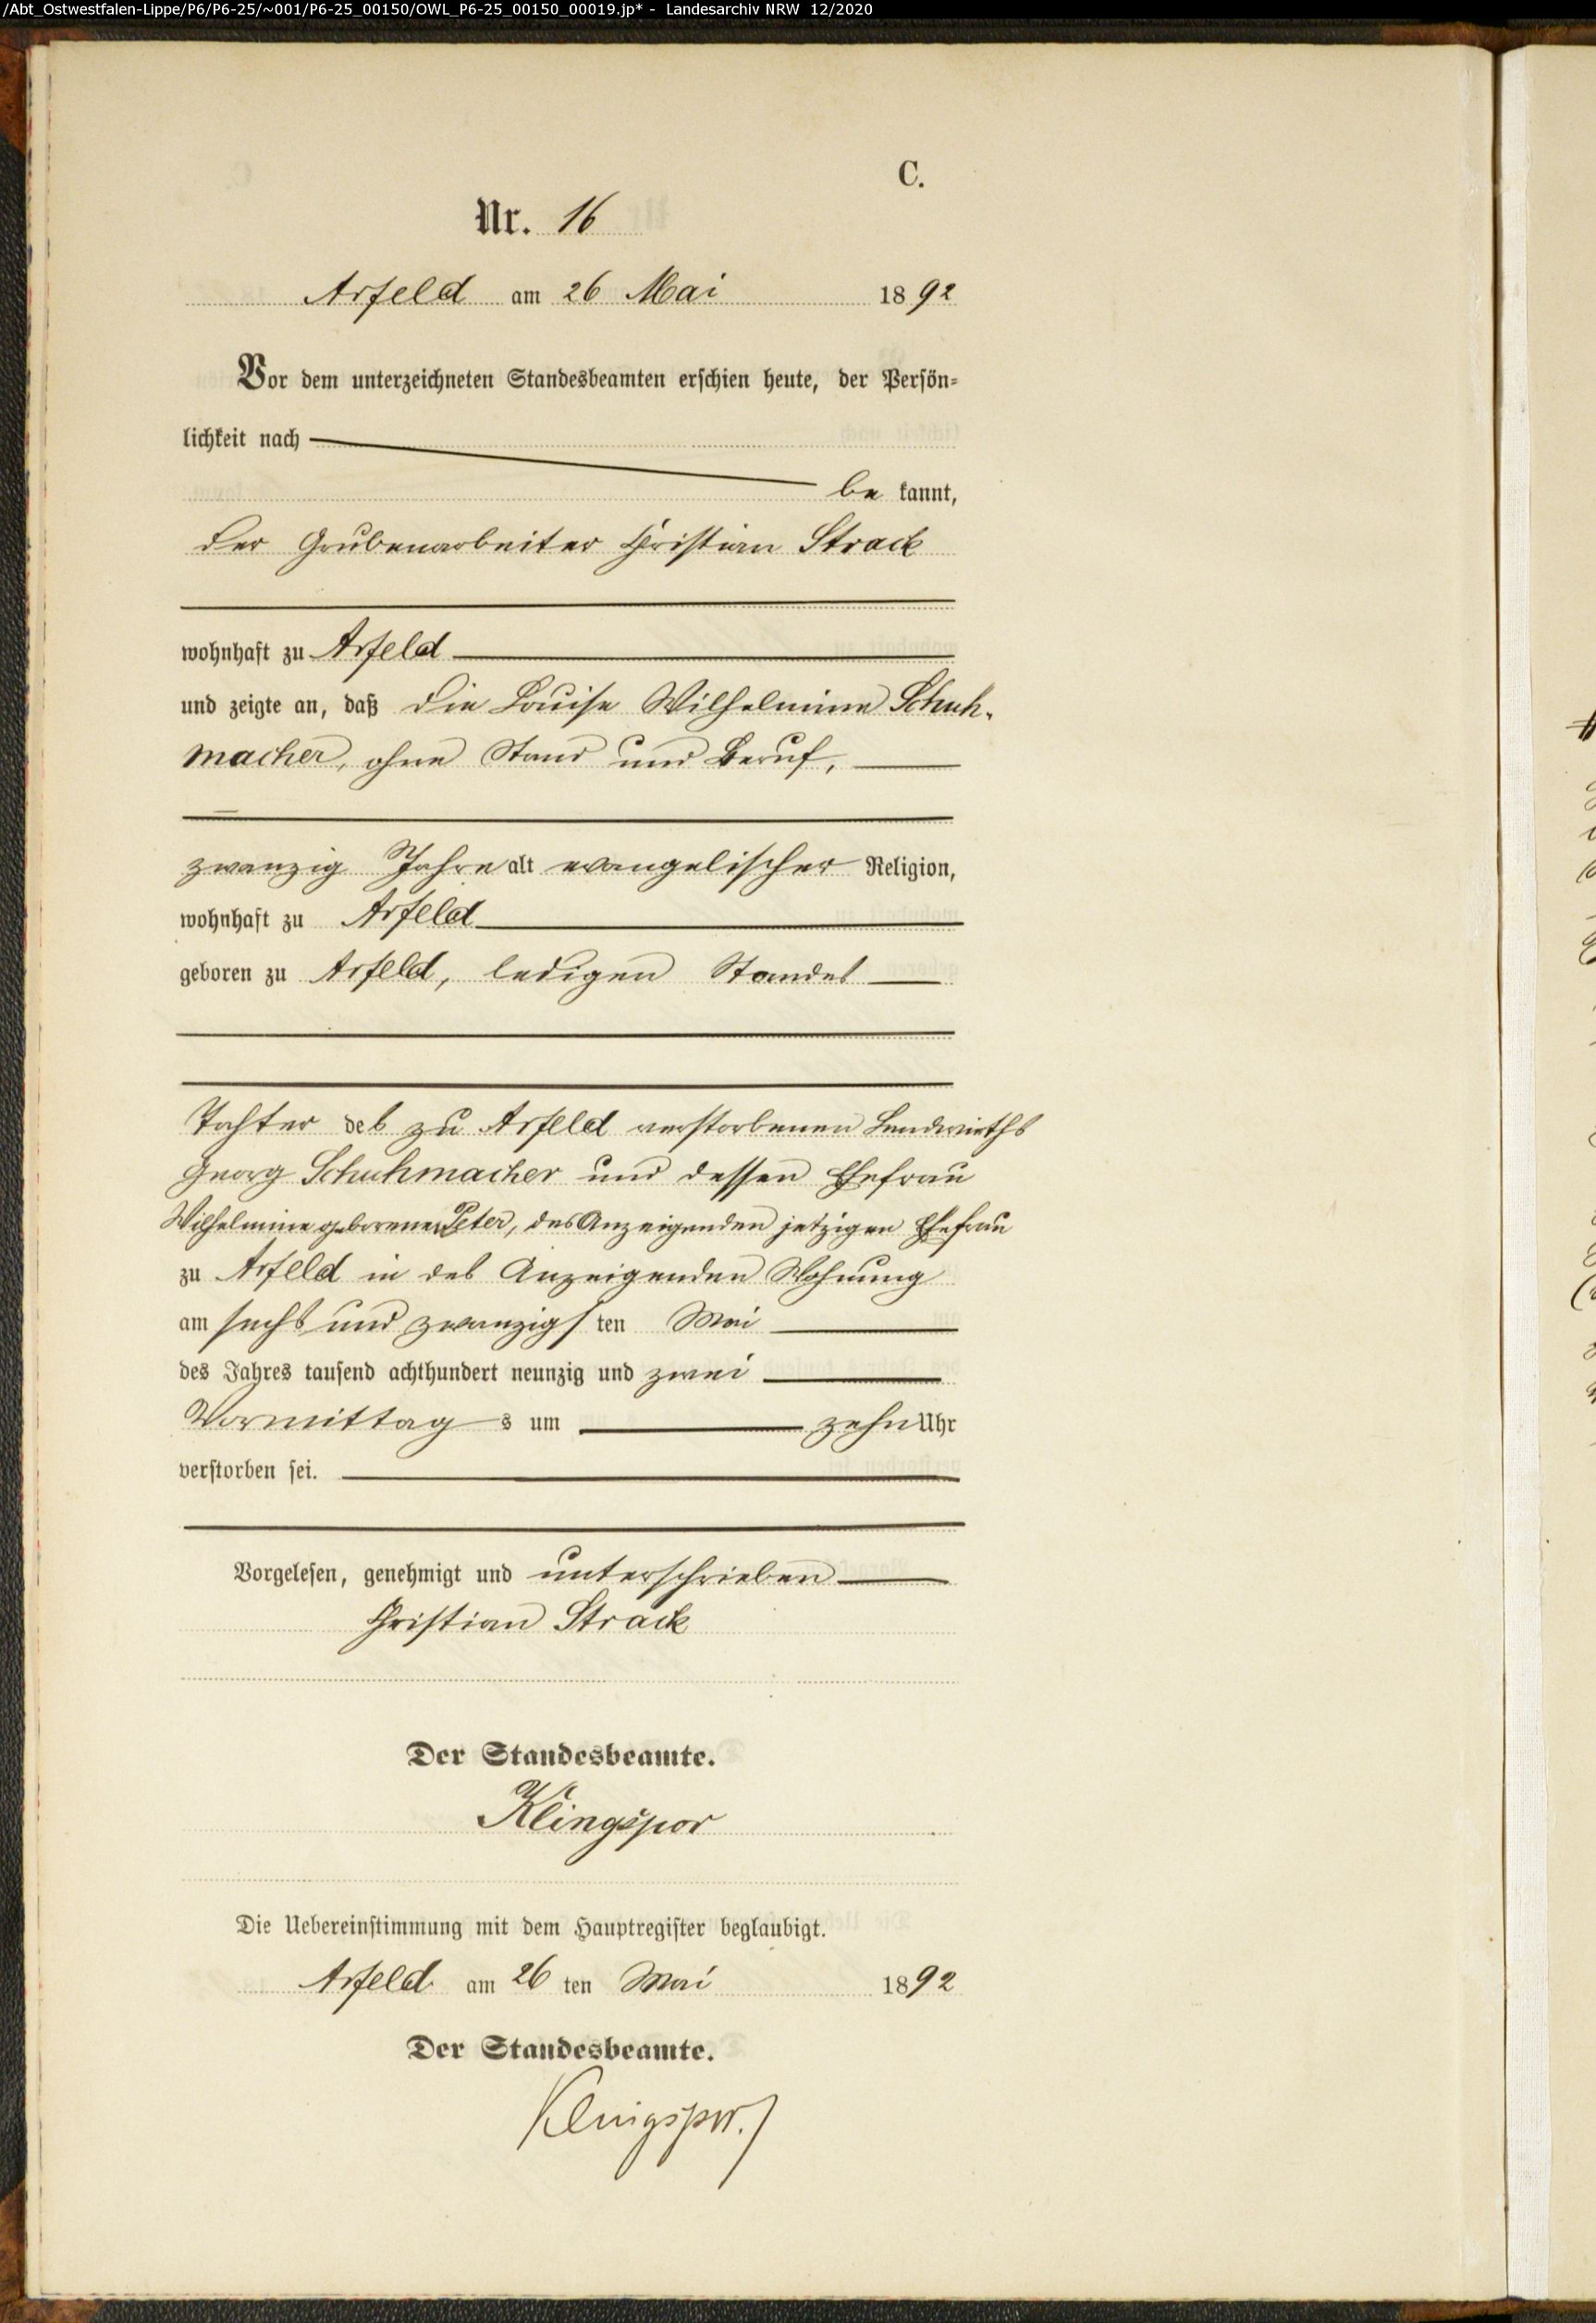 /Abt_Ostwestfalen-Lippe/P6/P6-25/~001/P6-25_00150/OWL_P6-25_00150_00019.jp* - Landesarchiv NRW 12/2020
C.
Nr. 16
Arfeld am 26 Mai 1892
Vor dem unterzeichneten Standesbeamten erschien heute, der Persön-
lichkeit nach
be kannt,
der Grubenarbeiter Christian Strack
wohnhaft zu Arfeld
und zeigte an, daß die Louise Wilhelmine Schuh-
macher, ohne Stand und Beruf,
zwanzig Jahre alt evangelischer Religion,
wohnhaft zu Arfeld
geboren zu Arfeld, ledigen Standes
Tochter des zu Arfeld verstorbenen Landwirths
Georg Schuhmacher und dessen Ehefrau
Wilhelmine geborenen Peter, des Anzeigenden jetzigen Ehefrau
zu Arfeld in des Anzeigenden Wohnung
am sechs und zwanzigsten Mai
des Jahres tausend achthundert neunzig und zwei
Vormittags um zehn Uhr
verstorben sei.
Vorgelesen, genehmigt und unterschrieben
Christian Strack
Der Standesbeamte.
Klingspor
Die Uebereinstimmung mit dem Hauptregister beglaubigt.
Arfeld am 26 ten Mai 1892
Der Standesbeamte.
Klingspor.